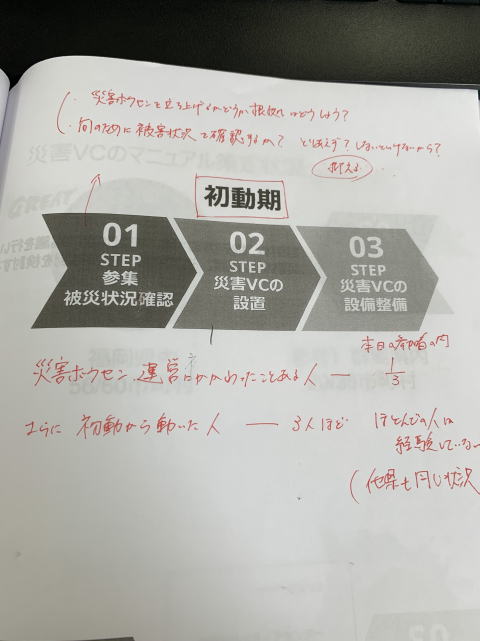 ・災害ボラセンを立ち上げるかどうか根拠はどうしよう？
・何のために被害状況を確認するか？ とりあえず？しないといけないから？
災害VCのマニュアル
初動期
01
STEP
参集
被災状況確認
02
STEP
災害VCの
設置
03
STEP
災害VCの
設備整備
本日の参加者の内
災害ボラセン運営にかかわったことある人 ― 1/3
さらに初動から動いた人 ― 3人ほど ほとんどの人は
経験していない
(他県も同じ状況